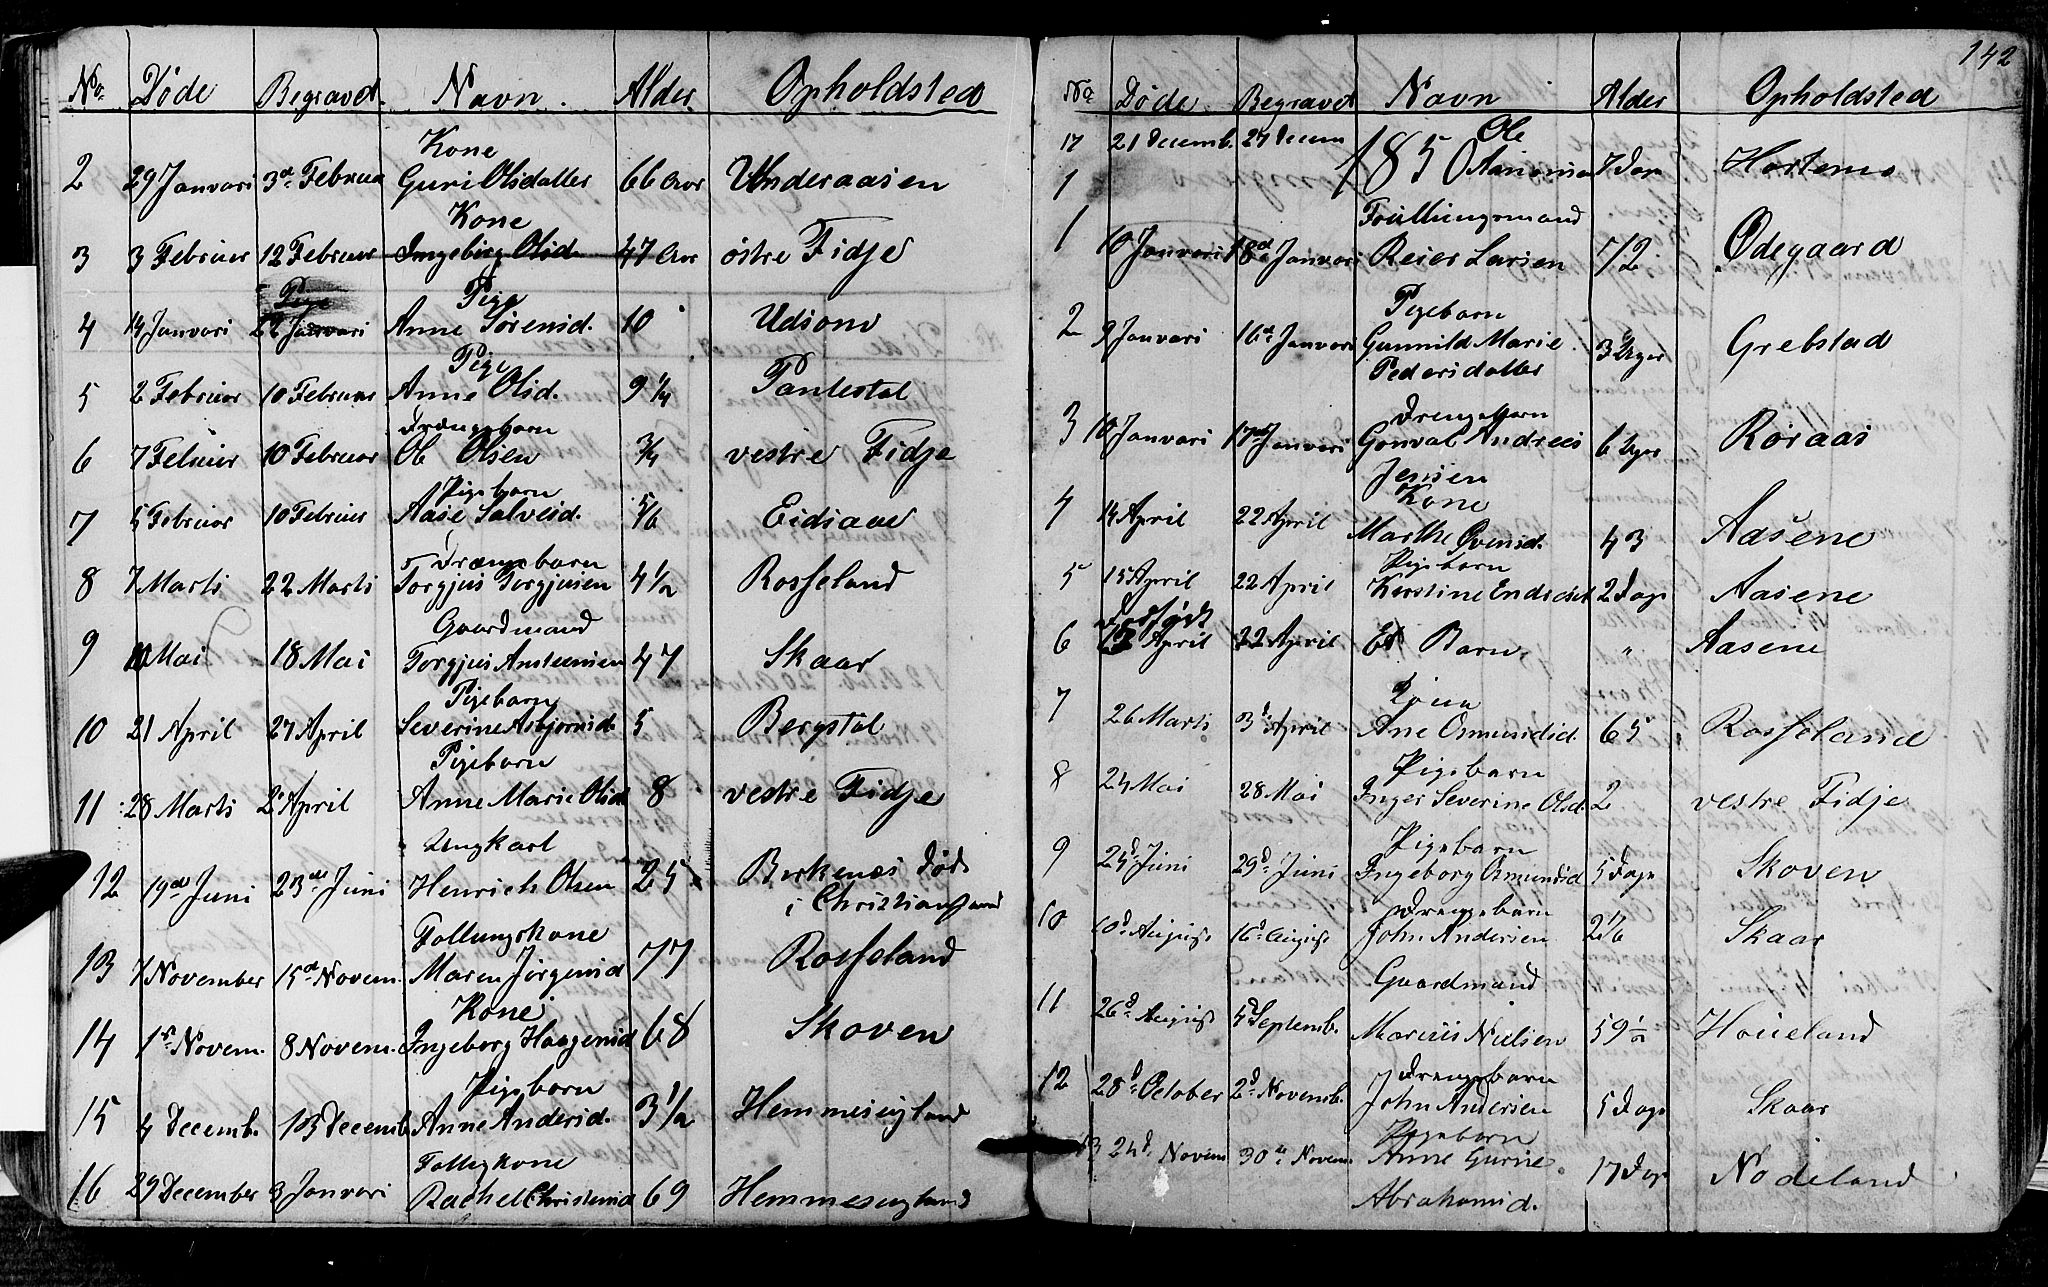 No. Døde Begravet Navn. Alder Opholdsted
Kone
2 29 Janvari 3d Februar Guri Olsdatter 66 Aar Underaasen
Kone
3 3 Februar 12 Februar Ingebörg Olsd. 47 Aar östre Fidje
Pige Pige
4 14 Janvari 22 Janvari Anne Sörensd. 10 Udsom
Pige
5 2 Februar 10 Februar Anne Olsd. 9 1/4 Tantestøl
Drængebarn
6 7 Februar 10 Februar Ole Olsen 3/4 vestre Fidje
Pigebarn
7 5 Februar 10 Februar Aase Salvesd. 5/6 Eidsaae
Drængebarn
8 7 Marts 22 Marts Torgjus Torgjusen 4 1/2 Rosseland
Gaardmand
9 10 Mai 18 Mai Torgjus Ansteensen 47 Skaar
Pigebarn
10 21 April 27 April Severine Asbjornsd. 5 Bergstøl
Pigebarn
11 28 Marts 2 April Anne Marie Olsd 8 vestre Fidje
Ungkarl
12 19de Juni 23de Juni Henrich Olsen 25 Berkenes Död
i Christiansand
Follungskone
13 7 November 15d Novem. Maren Jörgensd 77 Rosseland
Kone
14 1st Novem. 8 Novem. Ingeborg Haagensd 68 Skoven
Pigebarn
15 4 Decemb. 13 Decemb Anne Andersd. 3 1/2 Hemmesugland
Follegkone
16 29 December 3 Janvari Rachel Christensd 69 Hemmesugland
142
No Døde Begravet Navn Alder Opholdsted
17 21 Decemb. 27 Decem Ole 7 Dage Hortemo
1 1850
Foullungsmand
1 10 Janvari 18d Janvari Reier Larsen 72 Ødegaard
Pigebarn
2 9 Janvari 16d Janvari Gunnild Marie 3 Uger Grebstad
Pedersdatter
Drengebarn
3 10 Janvari 17d Janvari Gonval Andreas 6 Uger Røraas
Jensen
Kone
4 14 April 22 April Marthe Evensd. 43 Aasene
Pigebarn
5 15 April 22 April Kerstine Endresd 2 Dage Aasene
Dødfödt
6 April 22 April Et Barn " Aasene
7 26 Marts 3d April Ane Osmundsd. 65 Rosseland
Pigebarn
8 24 Mai 28 Mai Inger Severine Olsd. 2 vestre Fidje
Pigebarn
9 23d Juni 29d Juni Ingeborg Osmundsd 5 Dage Skoven
Drengebarn
10 10d August 16d August John Andersen 2 1/6 Skaar
Gaardmand
11 26d August 4d Septemb. Marcus Nielsen 59 1/2 Houeland
Drengebarn
12 28d October 2d Novemb. John Andersen 5 Dage Skaar
Pigebarn
13 24d Novem 30te Novem. Anne Gurine 17 Dage Nodeland
Abrahamsd.